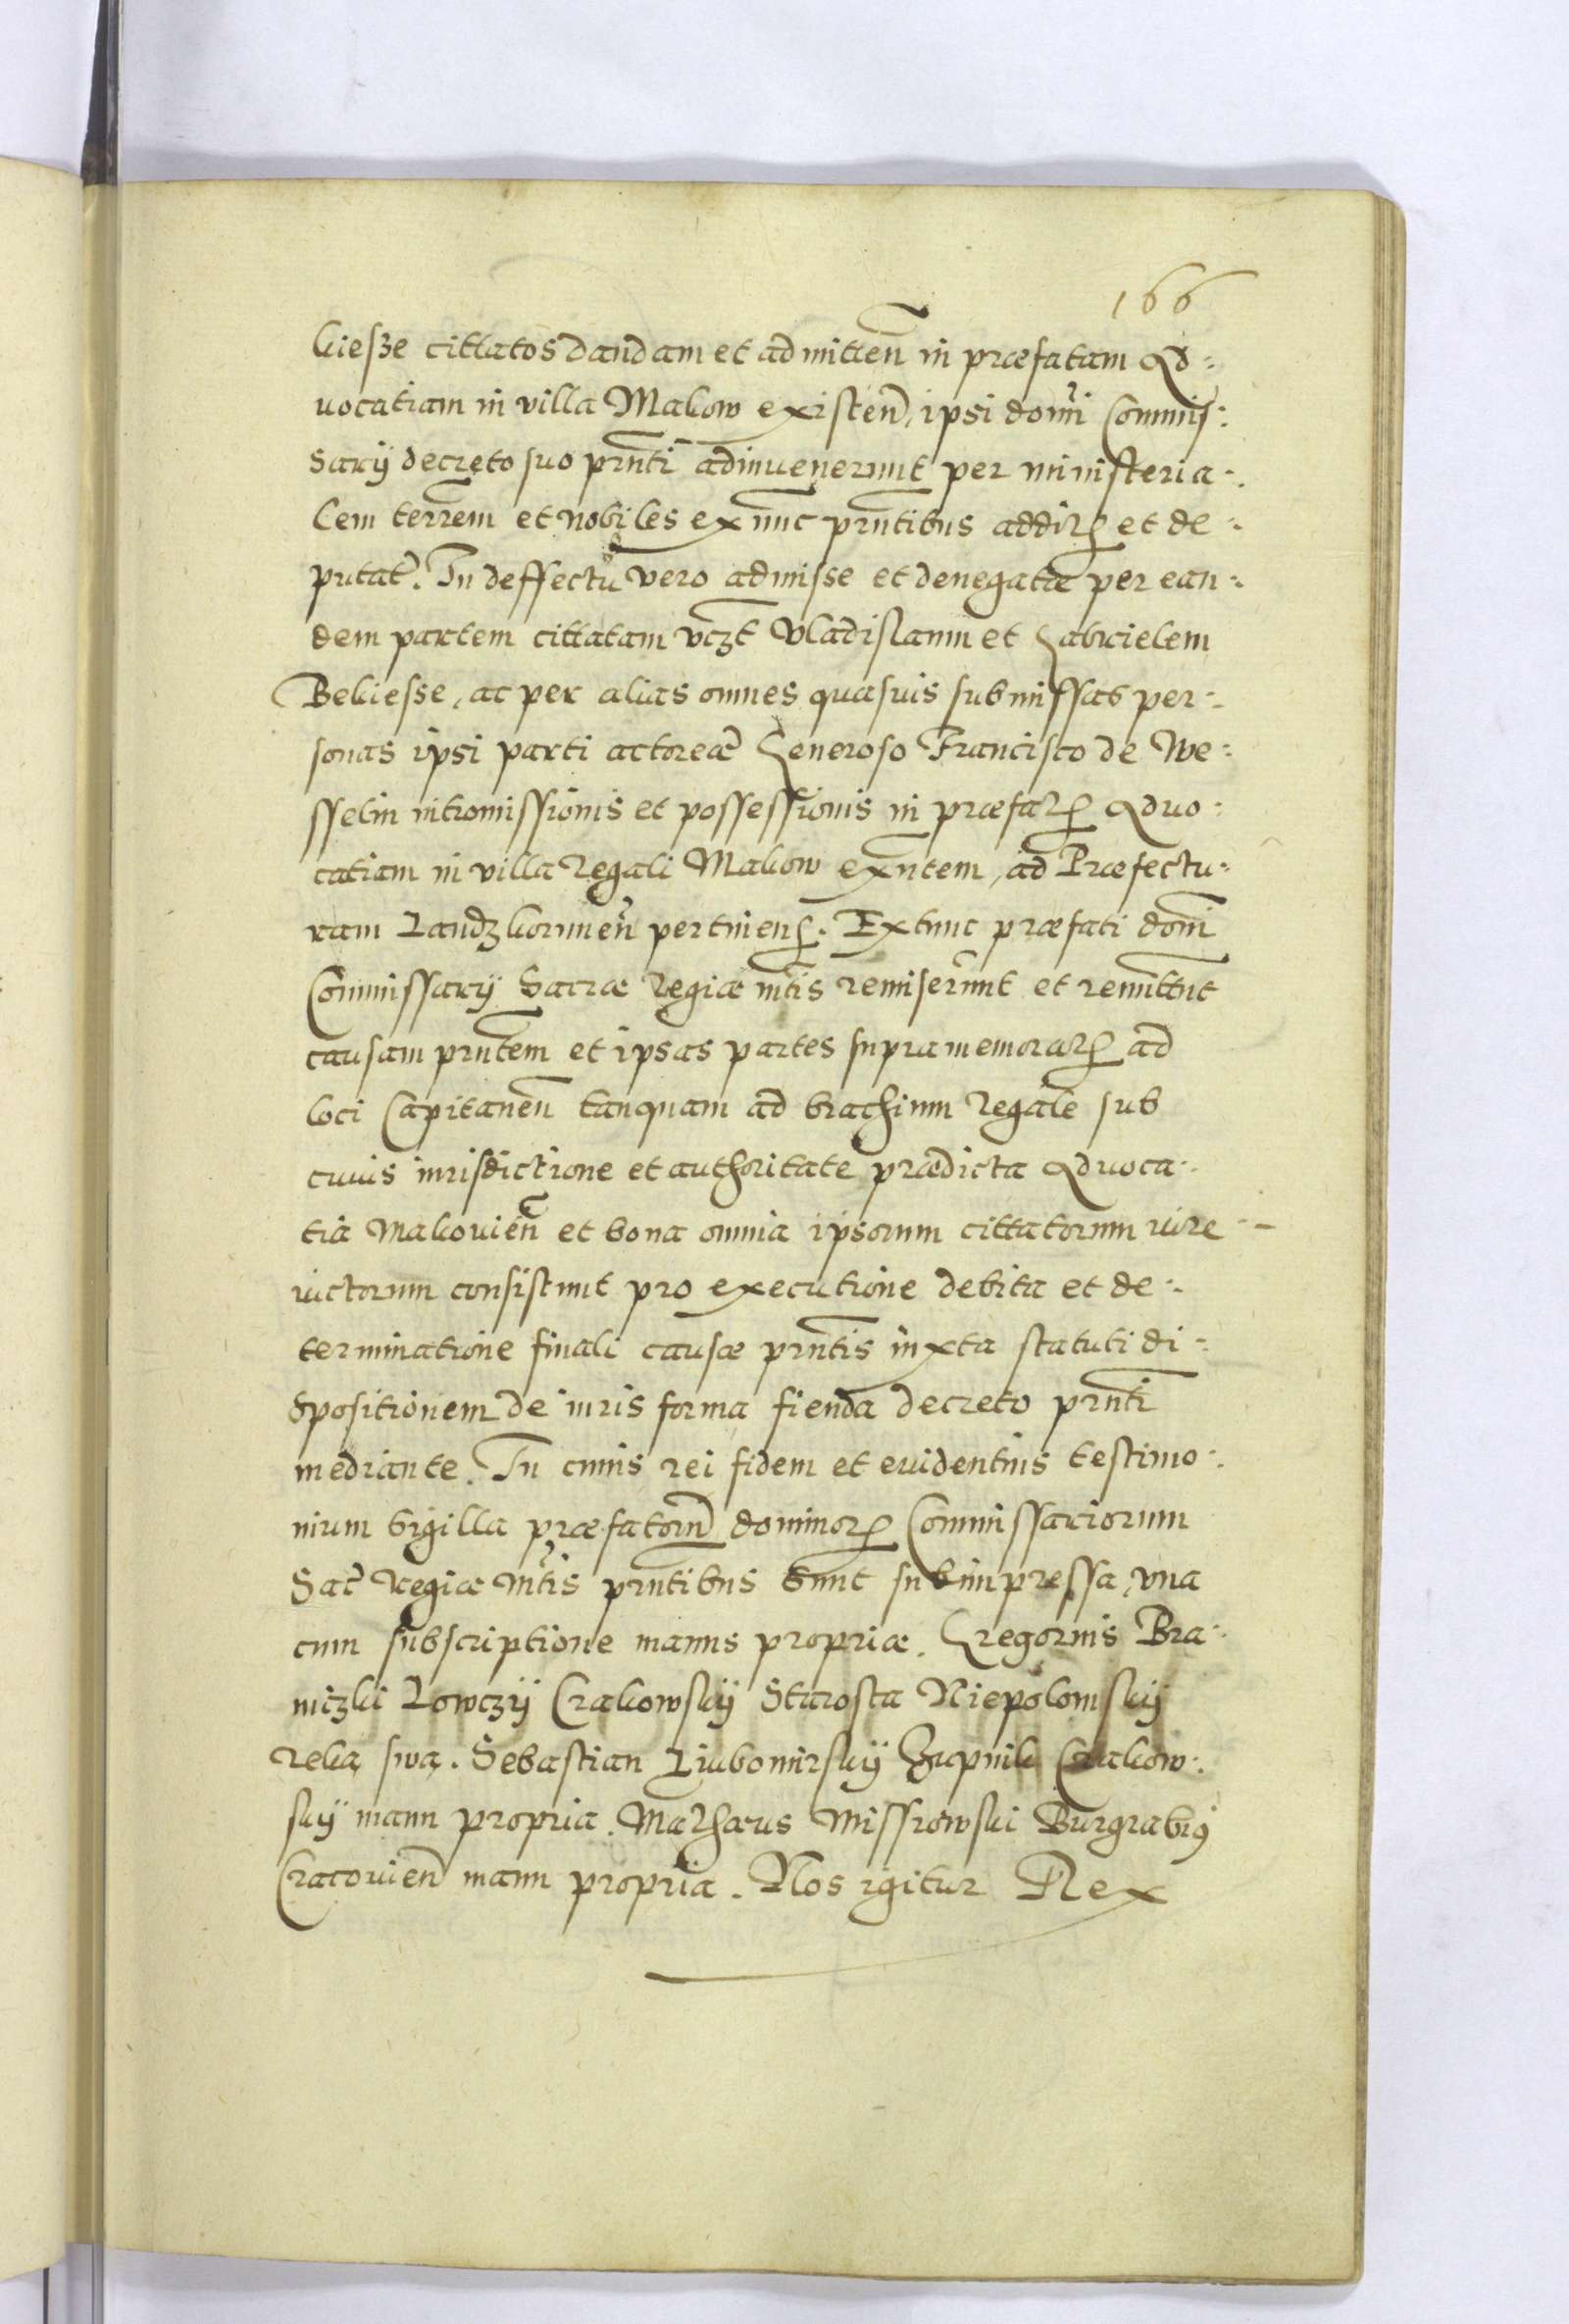 166
kiesze cittatos dandam et admitteñ in præfatam Ad-
uocatiam in villa Makow existeñ, ipsi domi Commis-
sarÿ decreto suo prnti adinuenerunt per ministeria-
lem terrem et nobiles ex nunc prntibus addit et de-
putat. In deffectu vero admisse et denegatæ per ean-
dem partem cittatam vczt Vladislaum et Gabrielem
Bekiesse, ac per alias omnes quasuis submissas per-
sonas ipsi parti actoreæ Generoso Francisco de We-
sselin intromissionis et possessionis in præfat Aduo-
catiam in villa Regali Makow exntem, ad Præfectu-
ram Landzkorunen pertinens. Extunc præfati domi
Commissarÿ Sacræ Regiæ mtis remiserunt et remittut
causam prntem et ipsas partes supramemorat ad
loci Capitaneu tanquam ad brachium Regale sub
cuius iurisdictione et authoritate prædicta Aduoca-
tia Makouien et bona omnia ipsorum cittatorum iure
uictorum consistunt pro executione debita et de-
terminatione finali causæ prntis iuxta statuti di-
spositionem de iuris forma fienda decreto prnti
mediante. In cuius rei fidem et euidentius testimo-
nium sigilla præfatorũ dominor Commissariorum
Sac Regiæ Mtis prntibus sunt subimpressa, vna
cum subscriptione manus propriæ. Gregorius Bra-
niczki Lowczÿ Crakowskÿ Starosta Niepolomskÿ
Reką swą. Sebastian Liubomirskÿ Zupnik Crakow-
skÿ manu propria. Mathæus Missiowski Burgrabiꝯ
Cracouien manu propria. Nos igitur Rex